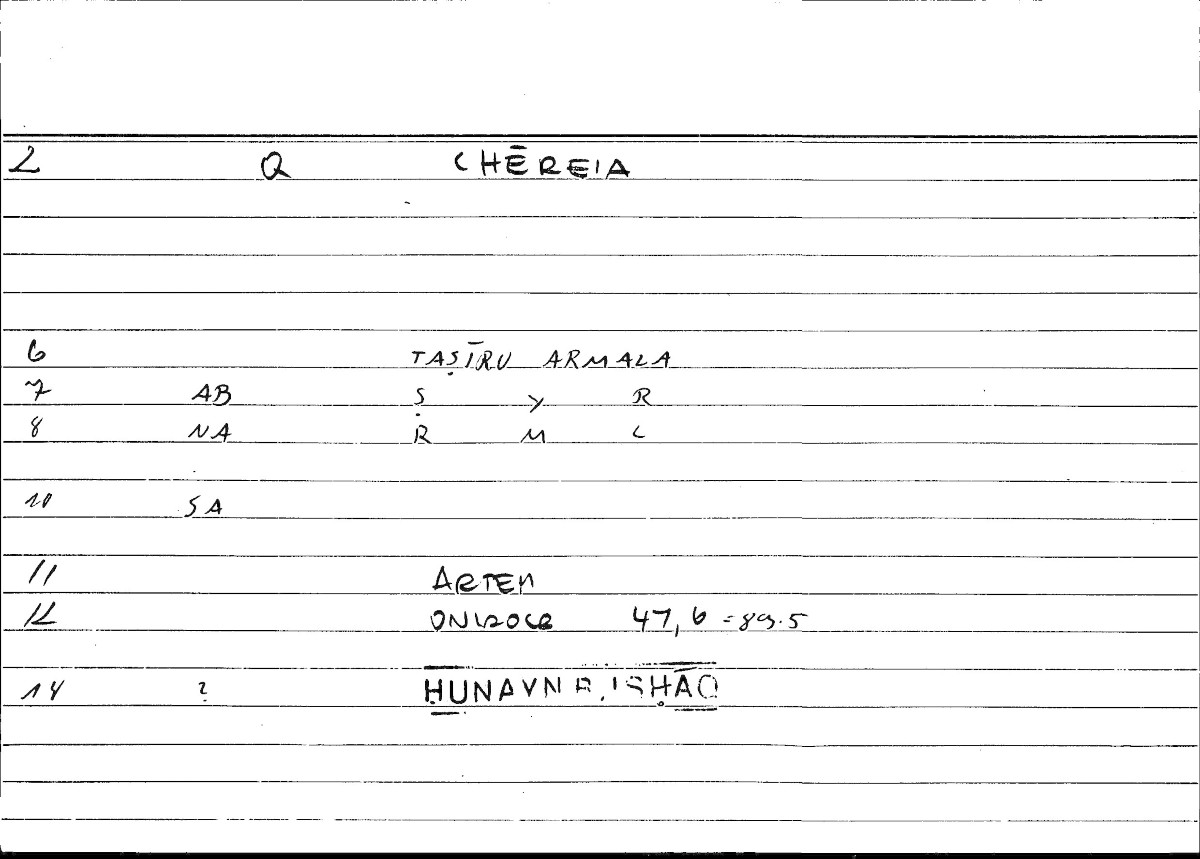 2 Q CHĒREIA
6 TAṢĪRU ARMALA
7 AB Ṣ Y R
8 NA R M L
10 SA
11 ARTEM
12 ONIROCR 47,6 = 89.5
14 ? ḤUNAYN B. ISḤĀQ